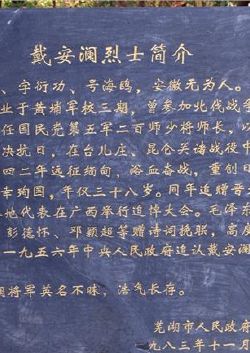 戴安澜烈士简介
、字衍功、号海鸥，安徽无为人。
业于黄埔军校三期，曾参加北伐战
任国民党第五军二百师少将师长，
决抗日，在台儿庄、昆仑关诸战役中
四二年远征缅甸，浴血奋战，重创日
幸殉国，年仅三十八岁。同年追赠
地代表在广西举行追悼大会。毛泽东
彭德怀、邓颖超等赠诗词挽联，高度
一九五六年中央人民政府追认戴安澜
澜将军英名不昧，浩气长存。
芜湖市人民政府
九八三年十一月